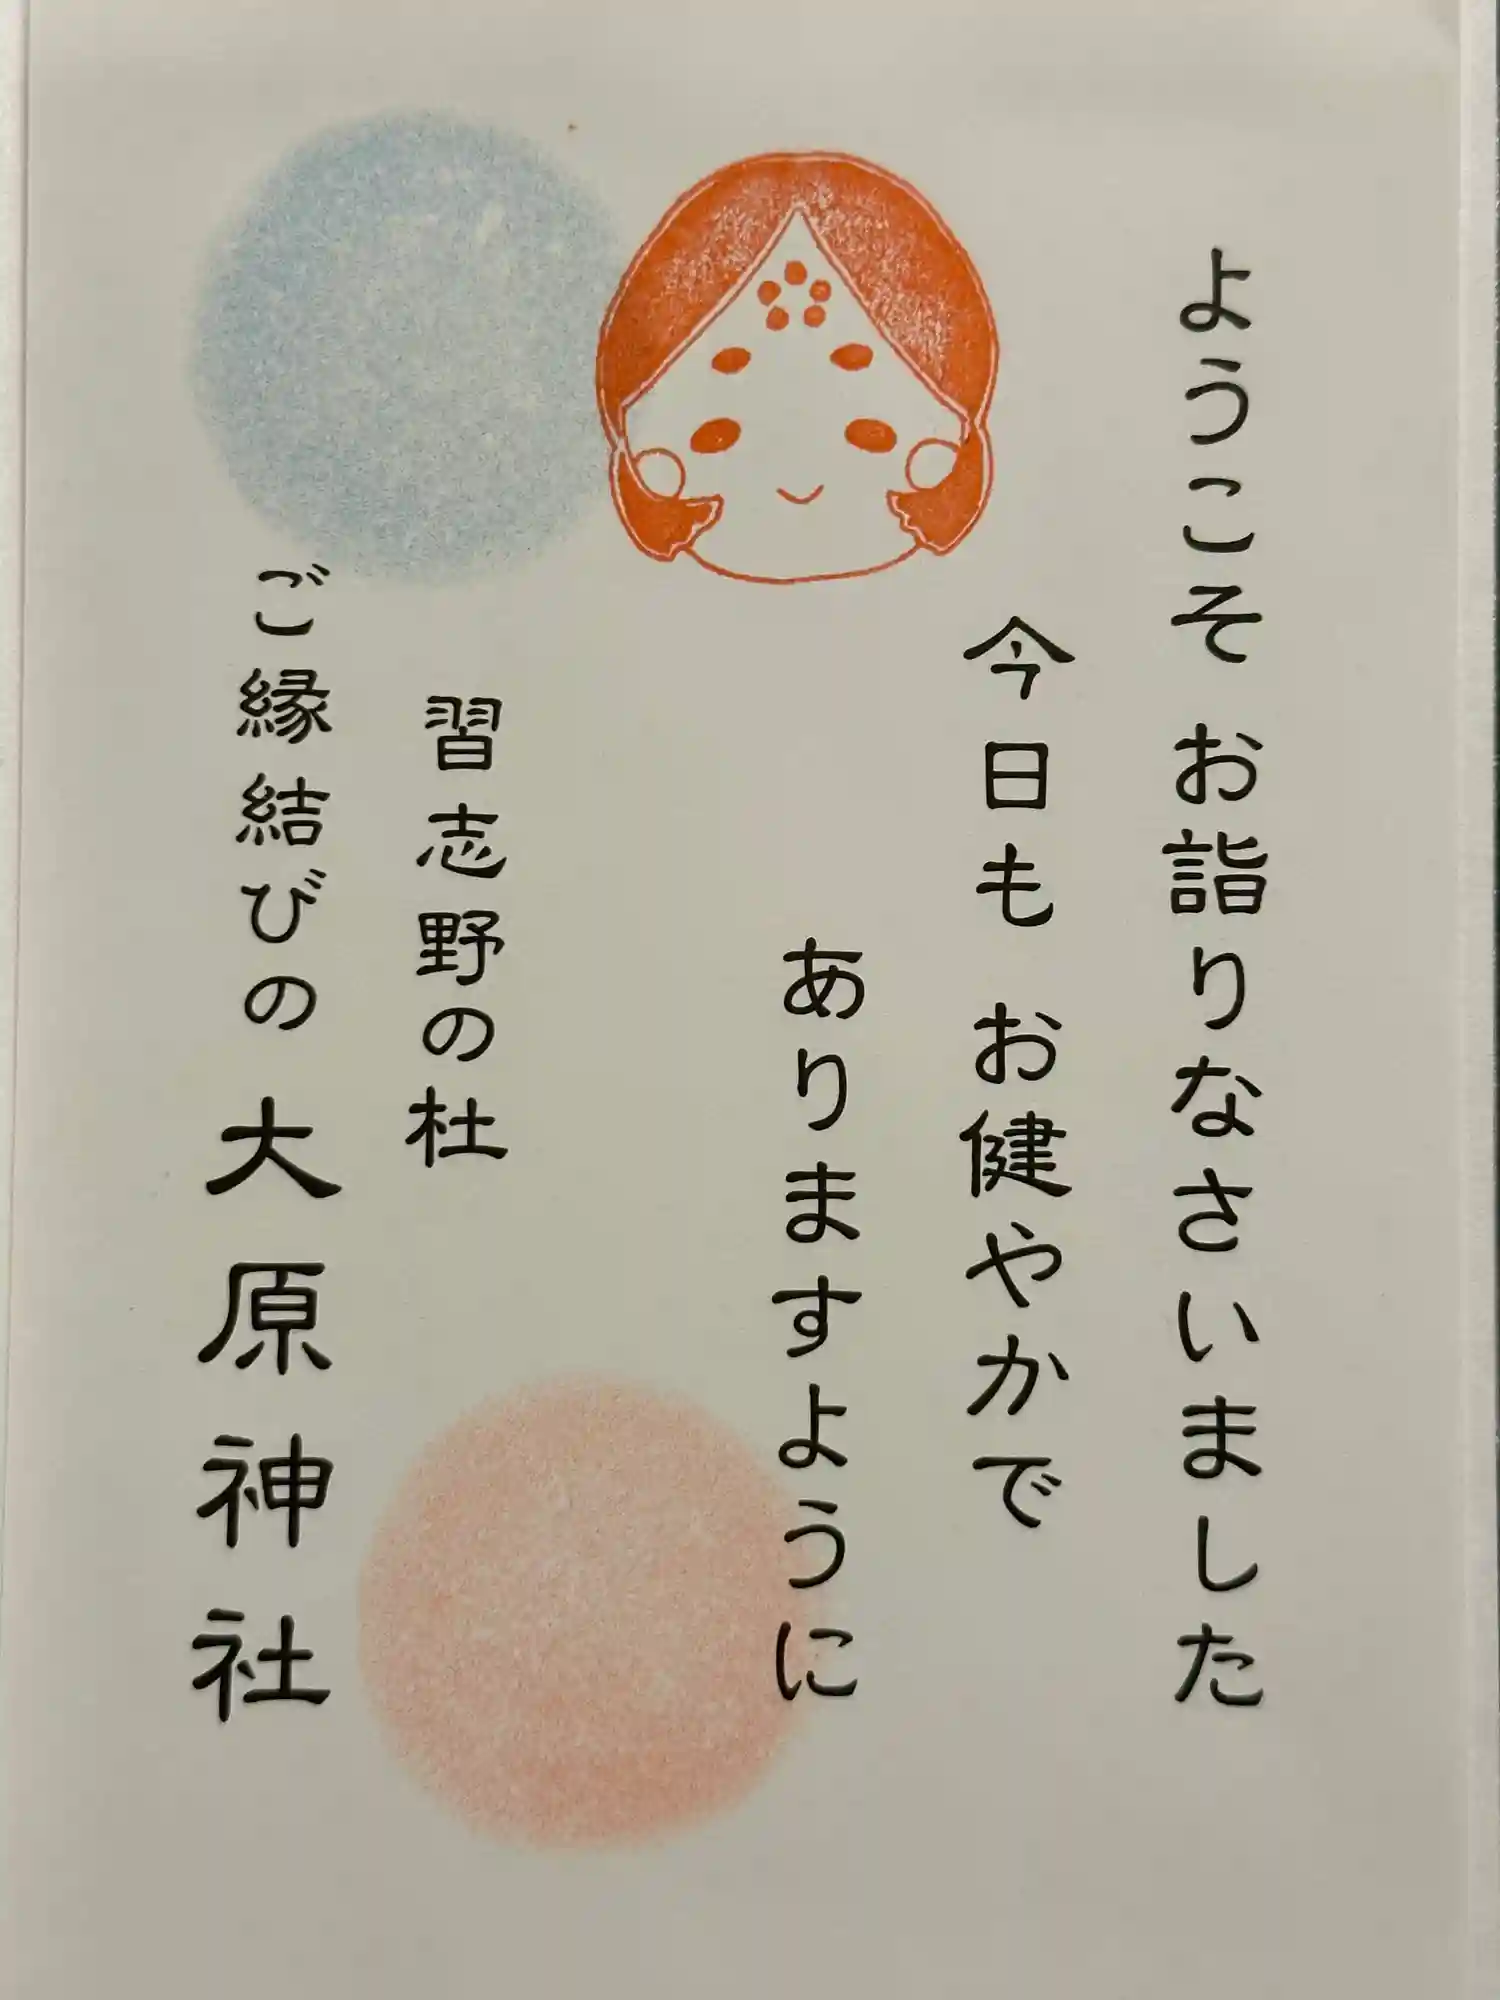 ようこそ お詣りなさいました
今日も お健やかで
ありますように
習志野の杜
ご縁結びの 大原神社